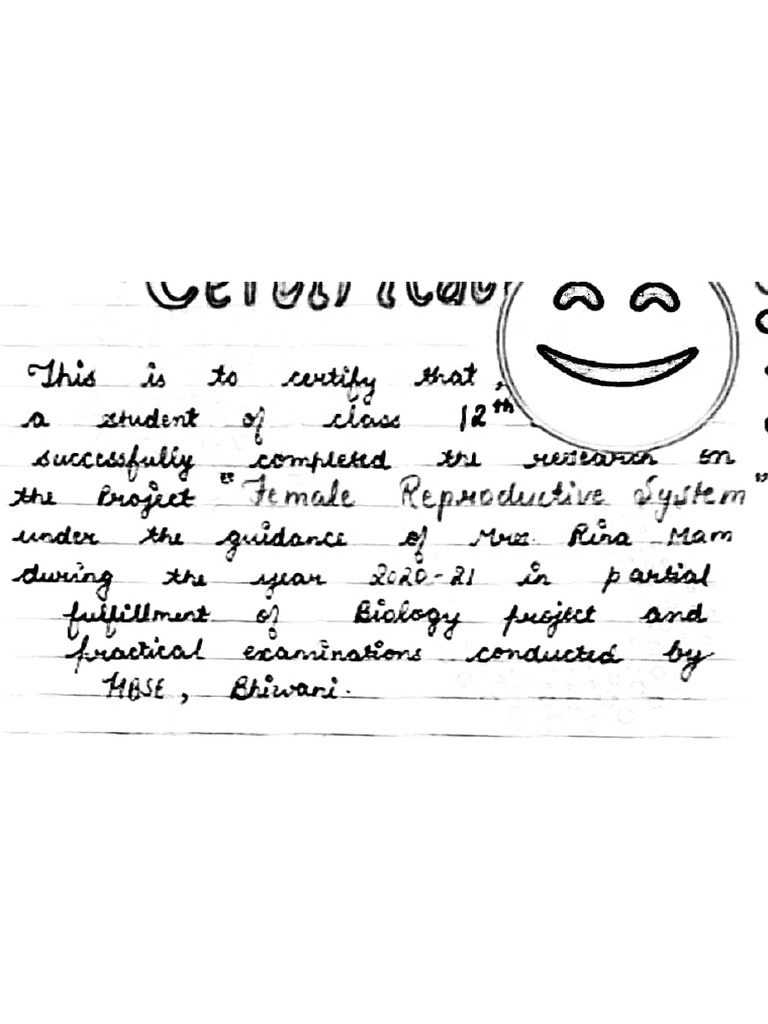 This is to certify that ,
a student of class 12th
successfully completed the research on
the Project "Female Reproductive System"
under the guidance of Mrs. Rina Mam
during the year 2020-21 in partial
fulfillment of Biology project and
practical examinations conducted by
HBSE, Bhiwani.